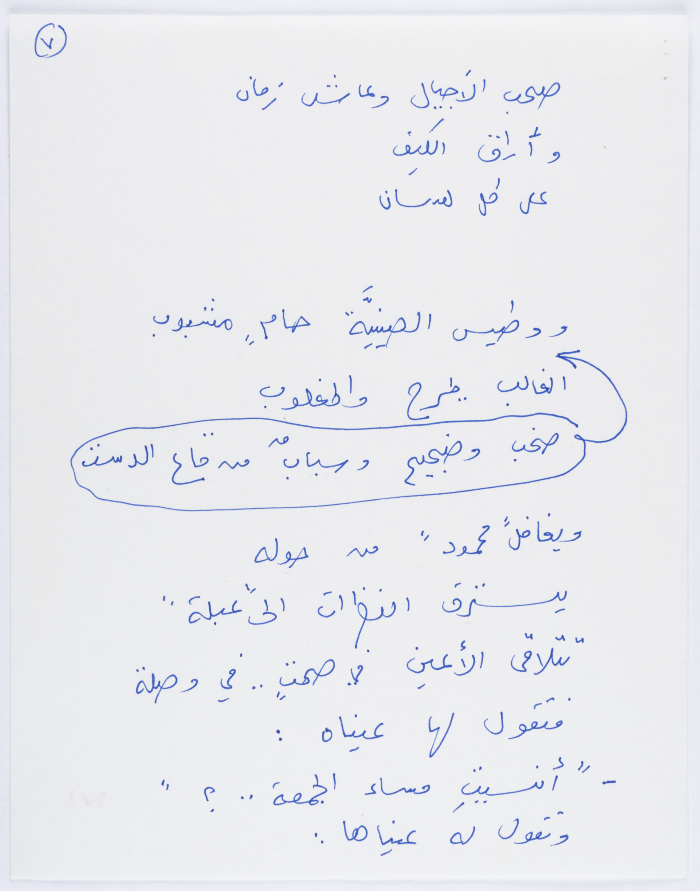 ٧
صخب الأجيال وعاش زمان
وأراق الكيف
على كل لسان
ووطيس الصينيَّة حامٍ مشبوب
الغالب يطرح والمغلوب
صخب وضجيج وسباب من قاع الدست
ويغافل "محمود" من حوله
يسترق النظرات الى "عبلة"
تتلاقى الأعين في صمتٍ .. في وصلة
فتقول لها عيناه :
- "أنسيتِ مساء الجمعة .. ؟"
وتقول له عيناها :